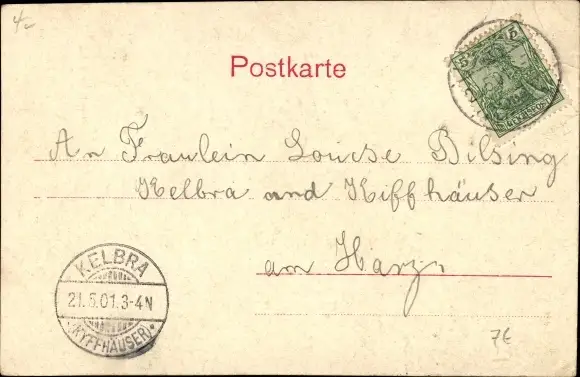 4-
Postkarte
5 5
An Fraulein Louise Bilsing
Kelbra and Kiffhäuser
am Harz
KELBRA
21.5.01.3-4N
*(KYFFHÄUSER)*
7€